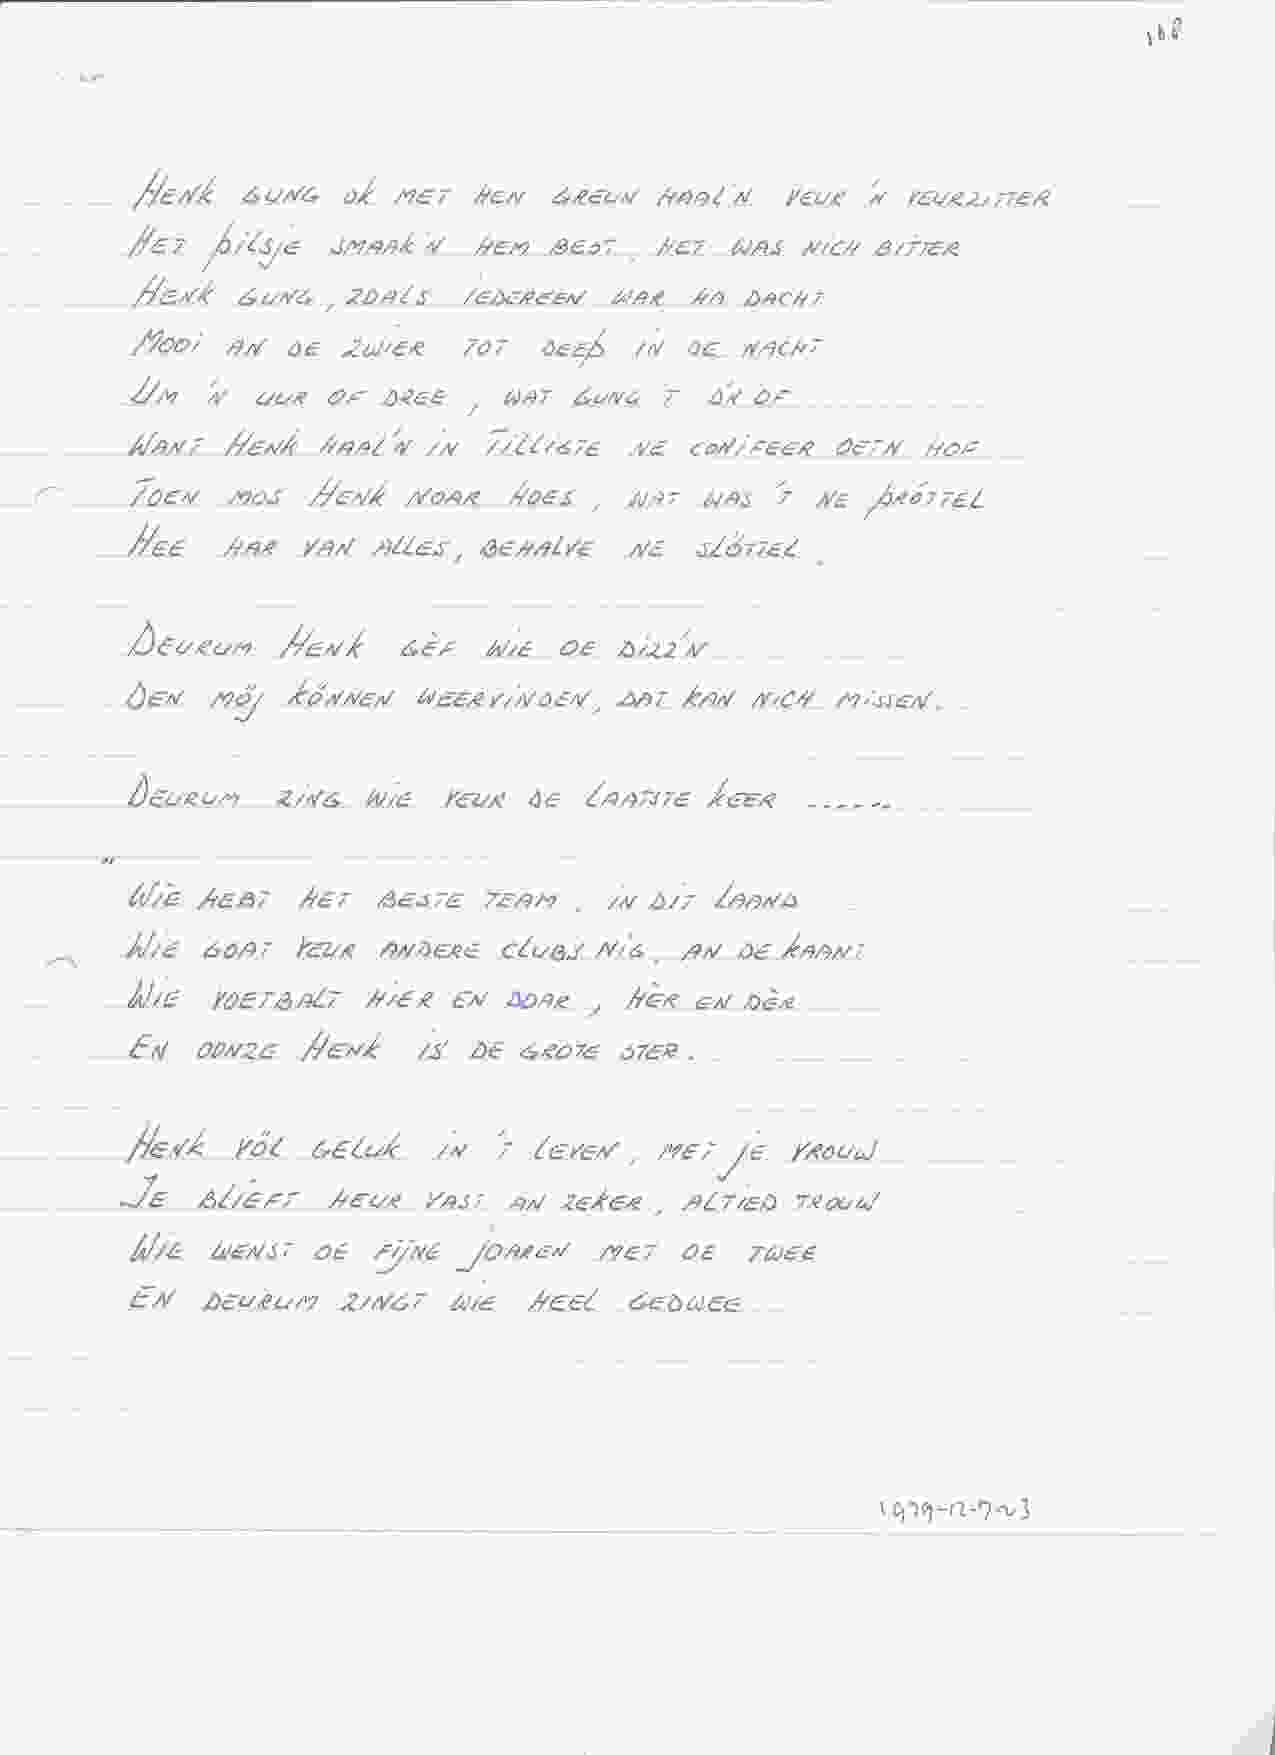 HENK GUNG OK MET HEN GREUN HAAL'N VEUR 'N VEURZITTER
HET PILSJE SMAAK'N HEM BEST, HET WAS NICH BITTER
HENK GUNG, ZOALS IEDEREEN WAR HA DACHT
MOOI AN DE ZWIER TOT DEEP IN DE NACHT
UM 'N UUR OF DREE, WAT GUNG 'T D'R OF
WANT HENK HAAL'N IN TILLIGTE NE CONIFEER OETN HOF
TOEN MOS HENK NOAR HOES, WAT WAS 'T NE PRÖTTEL
HEE HAR VAN ALLES, BEHALVE NE SLÖTTEL.
DEURUM HENK GÈF WIE OE DIZZ'N
DEN MÖJ KÖNNEN WEERVINDEN, DAT KAN NICH MISSEN.
DEURUM ZING WIE VEUR DE LAATSTE KEER ------
"
WIE HEBT HET BESTE TEAM, IN DIT LAAND
WIE GOAT VEUR ANDERE CLUBS NIG, AN DE KAANT
WIE VOETBALT HIER EN DOAR, HÈR EN DÈR
EN OONZE HENK IS DE GROTE STER.
HENK VÖL GELUK IN 'T LEVEN, MET JE VROUW
JE BLIEFT HEUR VAST AN ZEKER, ALTIED TROUW
WIE WENST OE FIJNE JOAREN MET OE TWEE
EN DEURUM ZINGT WIE HEEL GEDWEE
1979-12-7-23